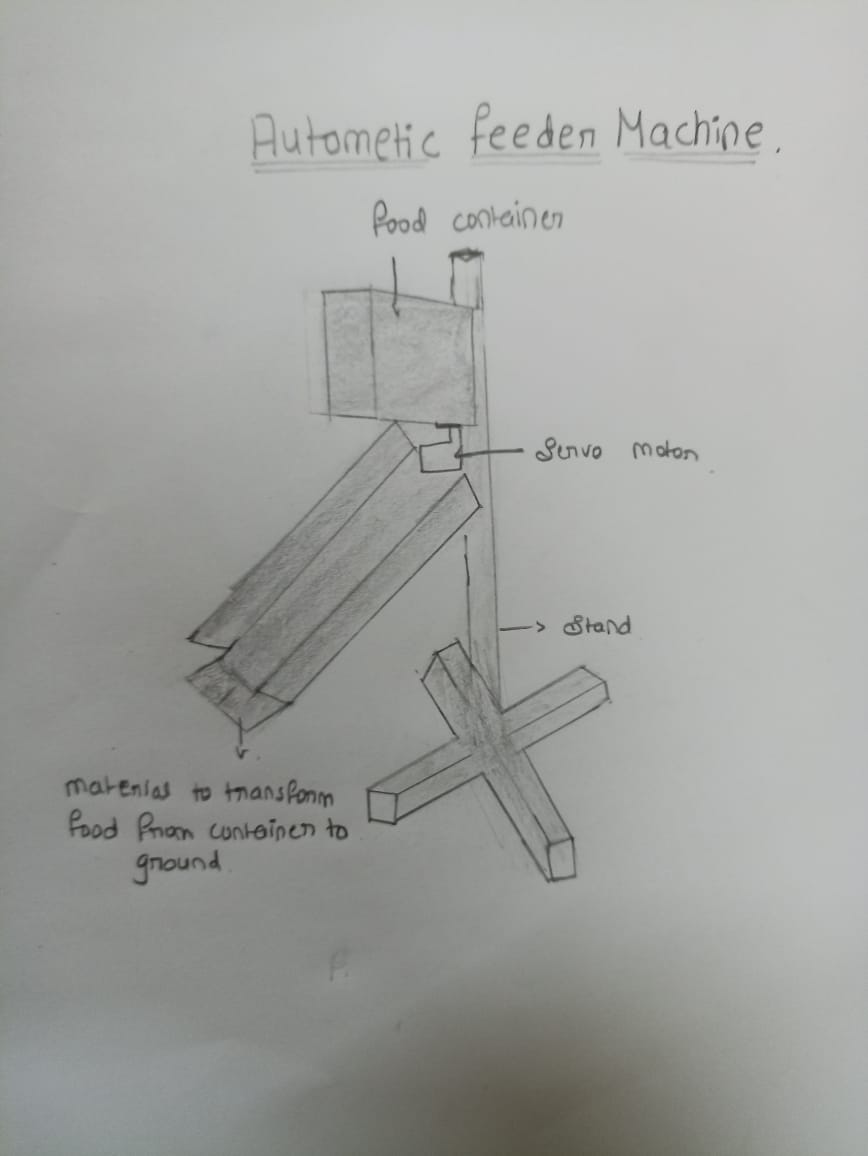 Autometic feeder Machine.
food container
Servo motor
Stand
materials to transform
food from container to
ground